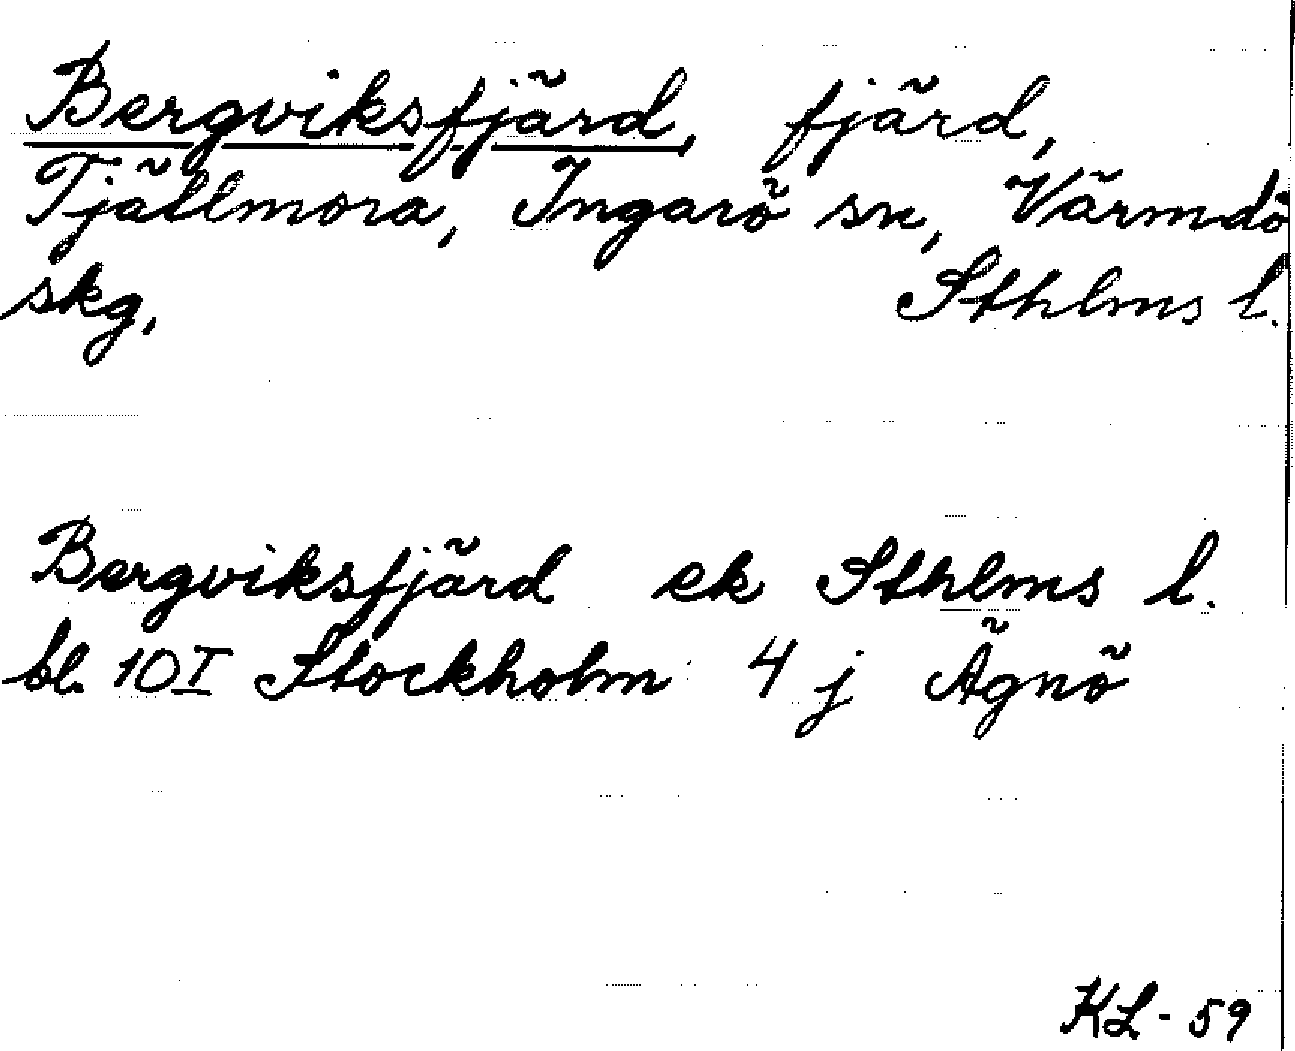 Bergviksfjärd, fjärd,
Tjällmora, Ingarö sn, Värmdö
skg, Sthlms l.
Bergviksfjärd ek Sthlms l.
bl. 10I Stockholm 4 j Ägnö
KL-59